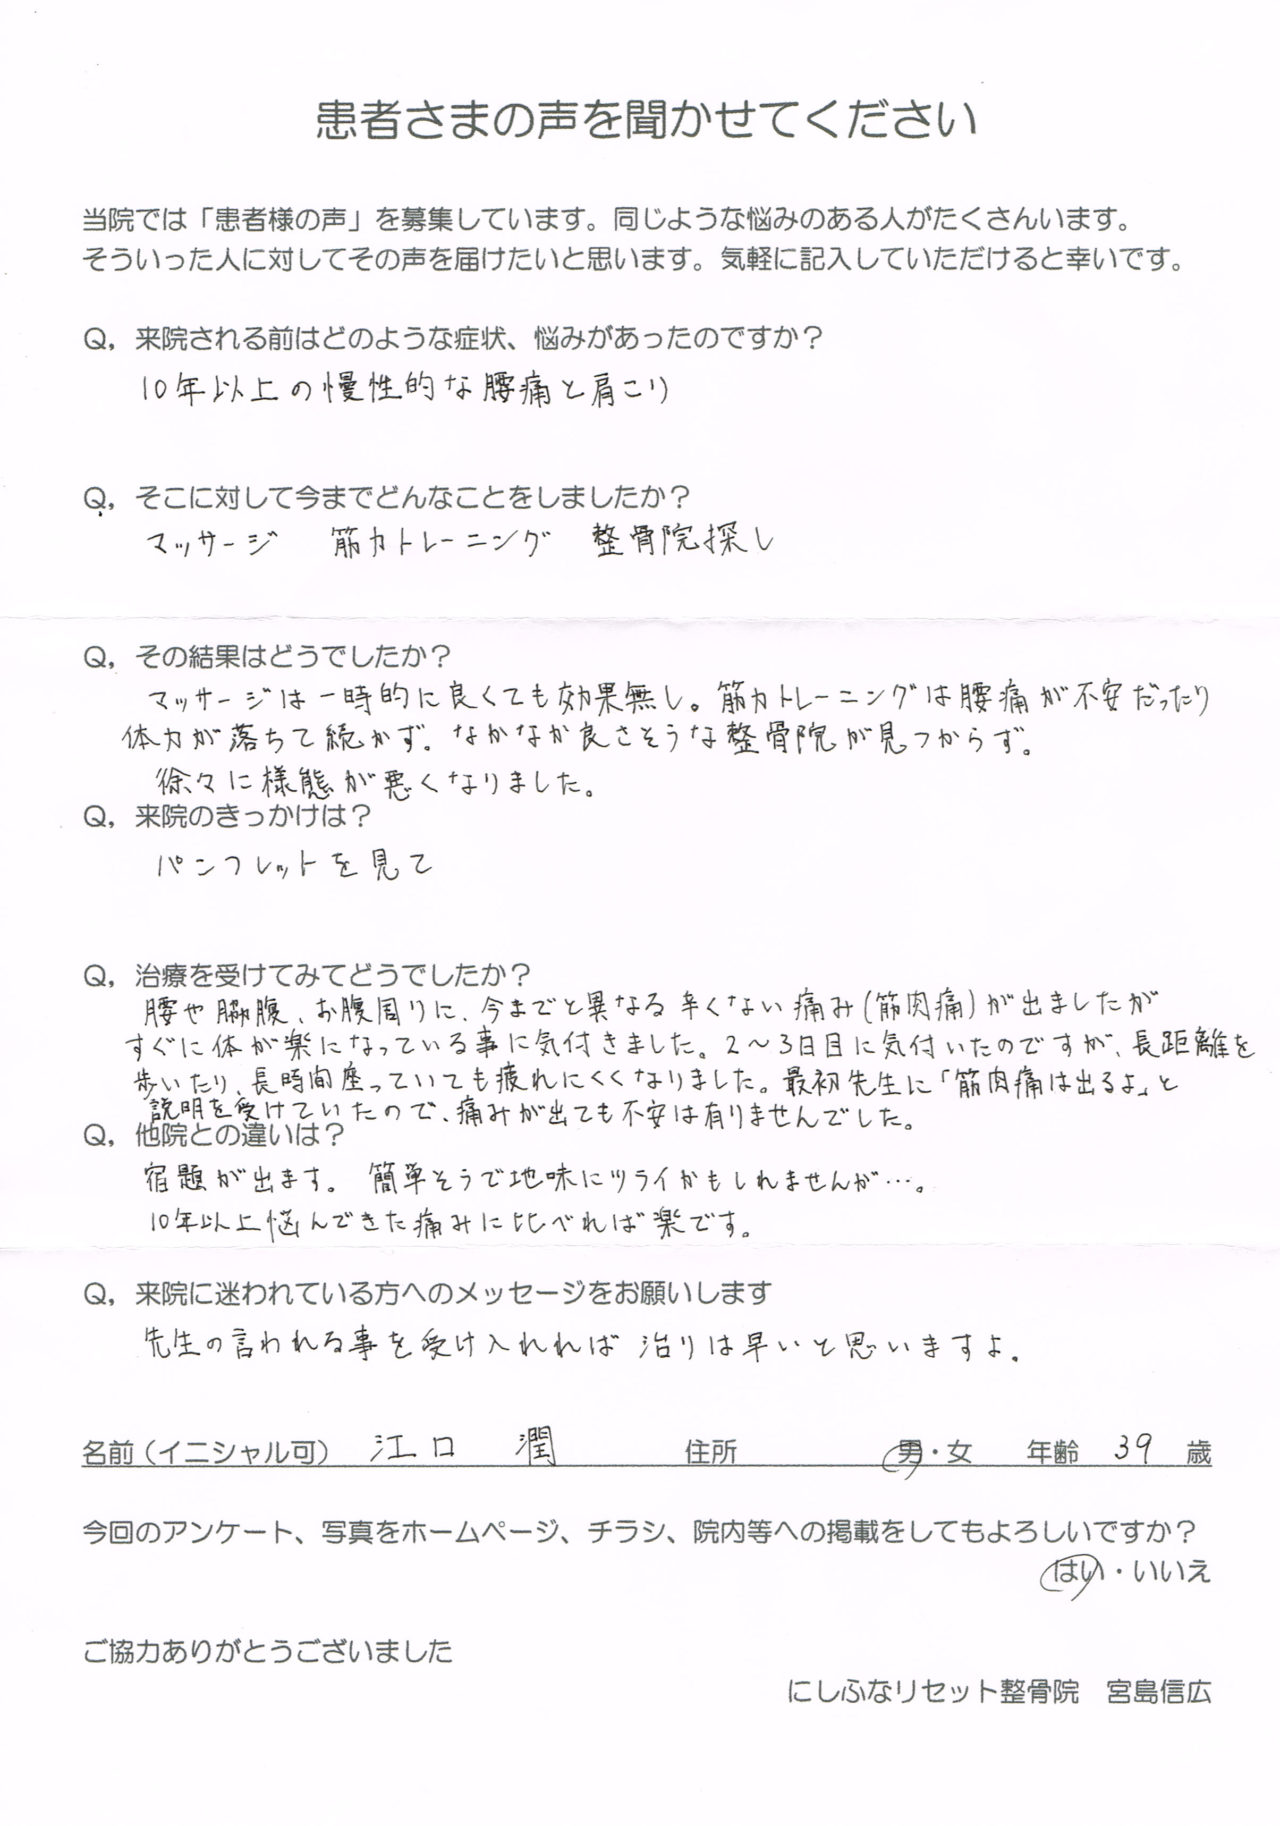 患者さまの声を聞かせてください
当院では「患者様の声」を募集しています。同じような悩みのある人がたくさんいます。
そういった人に対してその声を届けたいと思います。気軽に記入していただけると幸いです。
Q, 来院される前はどのような症状、悩みがあったのですか？
10年以上の慢性的な腰痛と肩こり
Q, そこに対して今までどんなことをしましたか？
マッサージ 筋力トレーニング 整骨院探し
Q, その結果はどうでしたか？
マッサージは一時的に良くても効果無し。筋力トレーニングは腰痛が不安だったり
体力が落ちて続かず。なかなか良さそうな整骨院が見つからず。
徐々に様態が悪くなりました。
Q, 来院のきっかけは？
パンフレットを見て
Q, 治療を受けてみてどうでしたか？
腰や脇腹、お腹周りに、今までと異なる辛くない痛み(筋肉痛)が出ましたが
すぐに体が楽になっている事に気付きました。2〜3日目に気付いたのですが、長距離を
歩いたり、長時間座っていても疲れにくくなりました。最初先生に「筋肉痛は出るよ」と
説明を受けていたので、痛みが出ても不安は有りませんでした。
Q, 他院との違いは？
宿題が出ます。 簡単そうで地味にツライかもしれませんが…。
10年以上悩んできた痛みに比べれば楽です。
Q, 来院に迷われている方へのメッセージをお願いします
先生の言われる事を受け入れれば 治りは早いと思いますよ。
名前（イニシャル可） 江口 潤 住所 男・女 年齢 39 歳
今回のアンケート、写真をホームページ、チラシ、院内等への掲載をしてもよろしいですか？
はい・いいえ
ご協力ありがとうございました
にしふなリセット整骨院 宮島信広